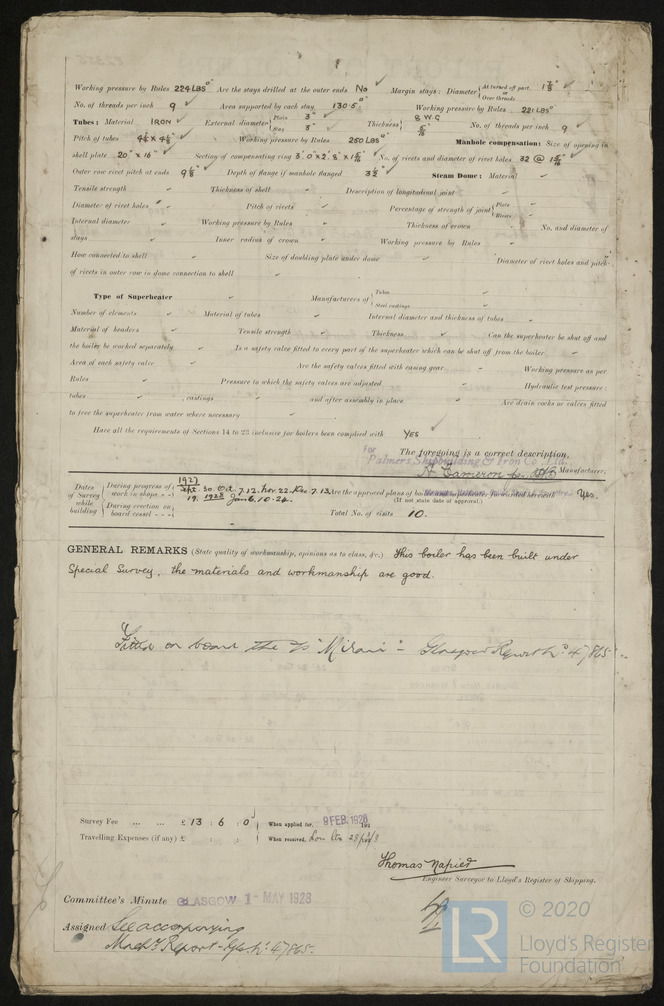 Working pressure by Rules 224 LBS □" Are the stays drilled at the outer ends No Margin stays: Diameter { At turned off part, or Over threads 1 7/8"
No. of threads per inch 9 Area supported by each stay 130·5 □" Working pressure by Rules 221 LBS □"
Tubes: Material IRON External diameter { Plain 3" Stay 3" Thickness { 8 W.G 5/16" No. of threads per inch 9
Pitch of tubes Working pressure by Rules 250 LBS □" Manhole compensation: Size of opening in
shell plate 20" x 16" Section of compensating ring No. of rivets and diameter of rivet holes 32 @
Outer row rivet pitch at ends Depth of flange if manhole flanged 3 1/2" Steam Dome: Material
Tensile strength Thickness of shell Description of longitudinal joint
Diameter of rivet holes Pitch of rivets Percentage of strength of joint { Plate Rivets
Internal diameter Working pressure by Rules Thickness of crown No. and diameter of
stays Inner radius of crown Working pressure by Rules
How connected to shell Size of doubling plate under dome Diameter of rivet holes and pitch
of rivets in outer row in dome connection to shell
Type of Superheater Manufacturers of { Tubes Steel castings
Number of elements Material of tubes Internal diameter and thickness of tubes
Material of headers Tensile strength Thickness Can the superheater be shut off and
the boiler be worked separately Is a safety valve fitted to every part of the superheater which can be shut off from the boiler
Area of each safety valve Are the safety valves fitted with easing gear Working pressure as per
Rules Pressure to which the safety valves are adjusted Hydraulic test pressure:
tubes , castings and after assembly in place Are drain cocks or valves fitted
to free the superheater from water where necessary
Have all the requirements of Sections 14 to 23 inclusive for boilers been complied with YES
The foregoing is a correct description,
For Palmers Shipbuilding & Iron Co., Ltd.
Manufacturer.
Dates of Survey while building { During progress of work in shops - - 1927 Sept. 30. Oct. 7. 12. Nov. 22. Dec. 7. 13. 19. 1928 Jan 6. 10. 24. Are the approved plans of boiler (If not state date of approval.) Yes.
During erection on board vessel - - - Total No. of visits 10.
GENERAL REMARKS (State quality of workmanship, opinions as to class, &c.) This boiler has been built under
Special Survey, the materials and workmanship are good.
Fitted on board the s/s "Mirani" - Glasgow Report No. 47865
Survey Fee ... ... £ 13 : 6 : 0 When applied for, 9 FEB. 1928
Travelling Expenses (if any) £ When received,
Thomas Napier
Engineer Surveyor to Lloyd's Register of Shipping.
Committee's Minute GLASGOW 1 - MAY 1928
Assigned See accompanying
Machy Report - Gls. No. 47865.
LR © 2020
Lloyd's Register
Foundation